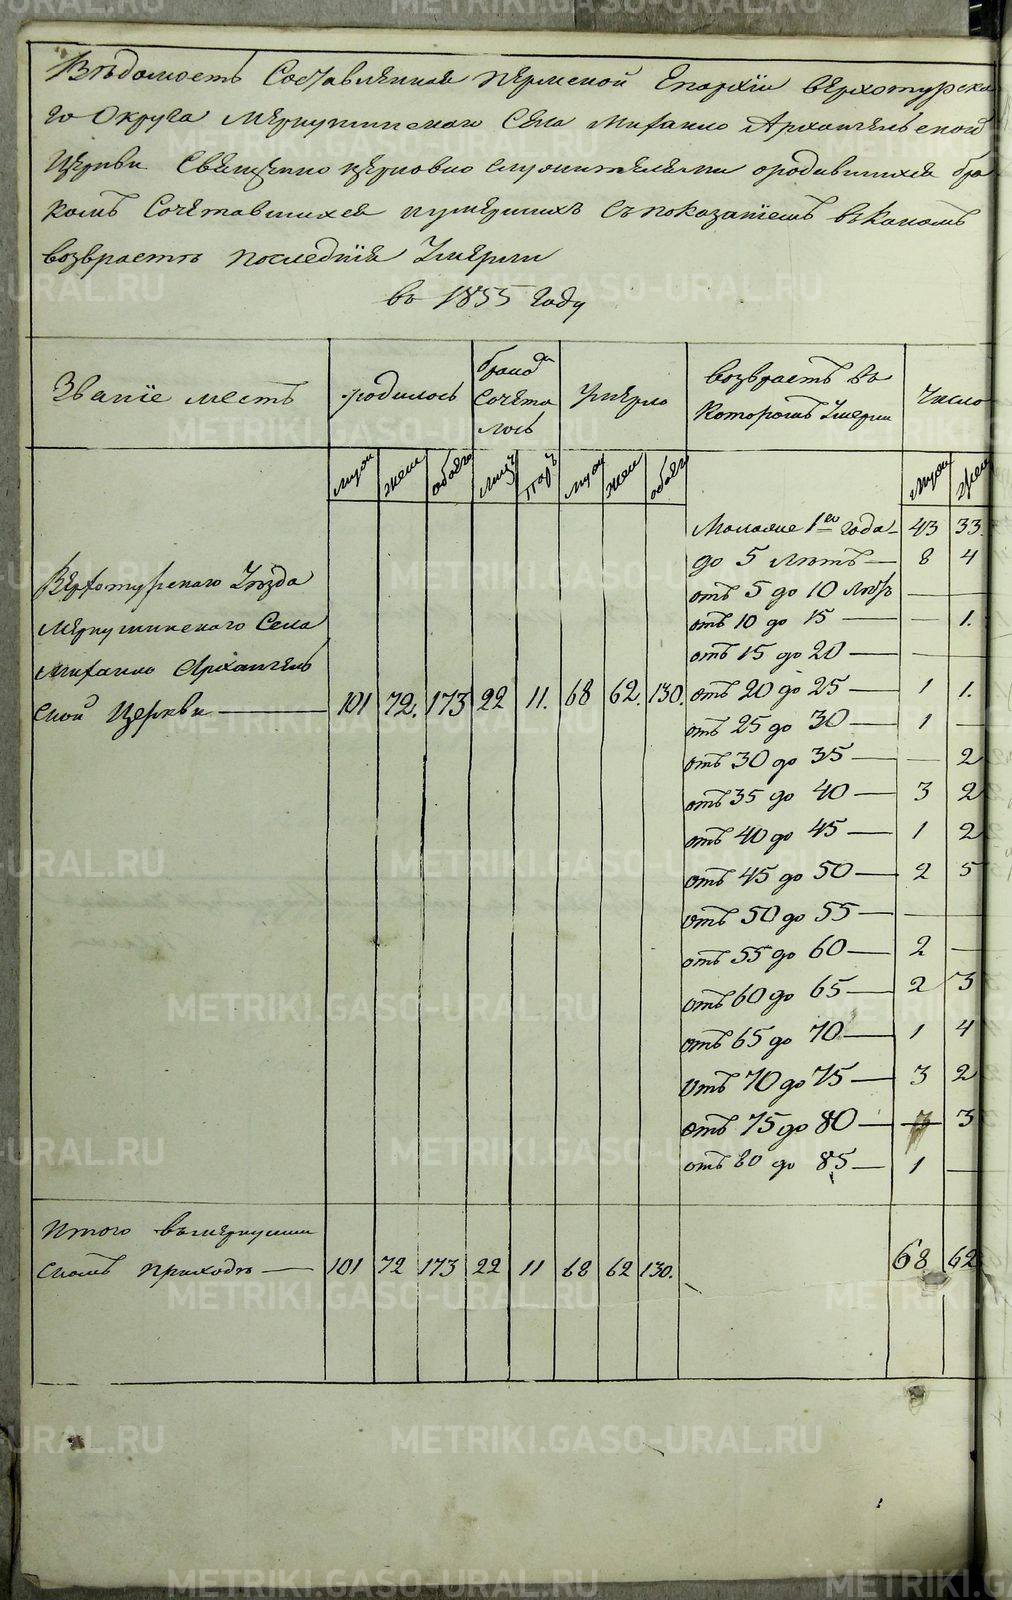 Вѣдомость Составленная Пермской Епархіи Верхотурска
го Округа Меркушинскаго Села Михаило Архангельской
Церкви Священно церковно служителями ородившихся бра
комъ Сочетавшихся иумершихъ Съпоказаніемъ въкакомъ
возврастѣ последнія Умерли
въ 1855 Году
Званіе местъ
родилось
бракомъ Сочета лось
Умерло
возврастъ въ Которомъ Умерли
Число
муж жен обоего лицъ паръ муж жен обоего муж жен
Верхотурскаго Уѣзда
Меркушинскаго Села
Михаило Архангель
ской Церкви — 101 72. 173 22 11. 68 62. 130.
Моложе 1го года — 43 33.
до 5 Лѣтъ — 8 4
отъ 5 до 10 лѣтъ — —
отъ 10 до 15 — — 1.
отъ 15 до 20 — — —
отъ 20 до 25 — 1 1.
отъ 25 до 30 — 1 —
отъ 30 до 35 — — 2
отъ 35 до 40 — 3 2
отъ 40 до 45 — 1 2
отъ 45 до 50 — 2 5
отъ 50 до 55 — — —
отъ 55 до 60 — 2 —
отъ 60 до 65 — 2 3
отъ 65 до 70 — 1 4
отъ 70 до 75 — 3 2
отъ 75 до 80 — — 3
отъ 80 до 85 — 1 —
Итого вмеркушин
скомъ приходѣ — 101 72 173 22 11 68 62 130. 68 62
METRIKI.GASO-URAL.RU